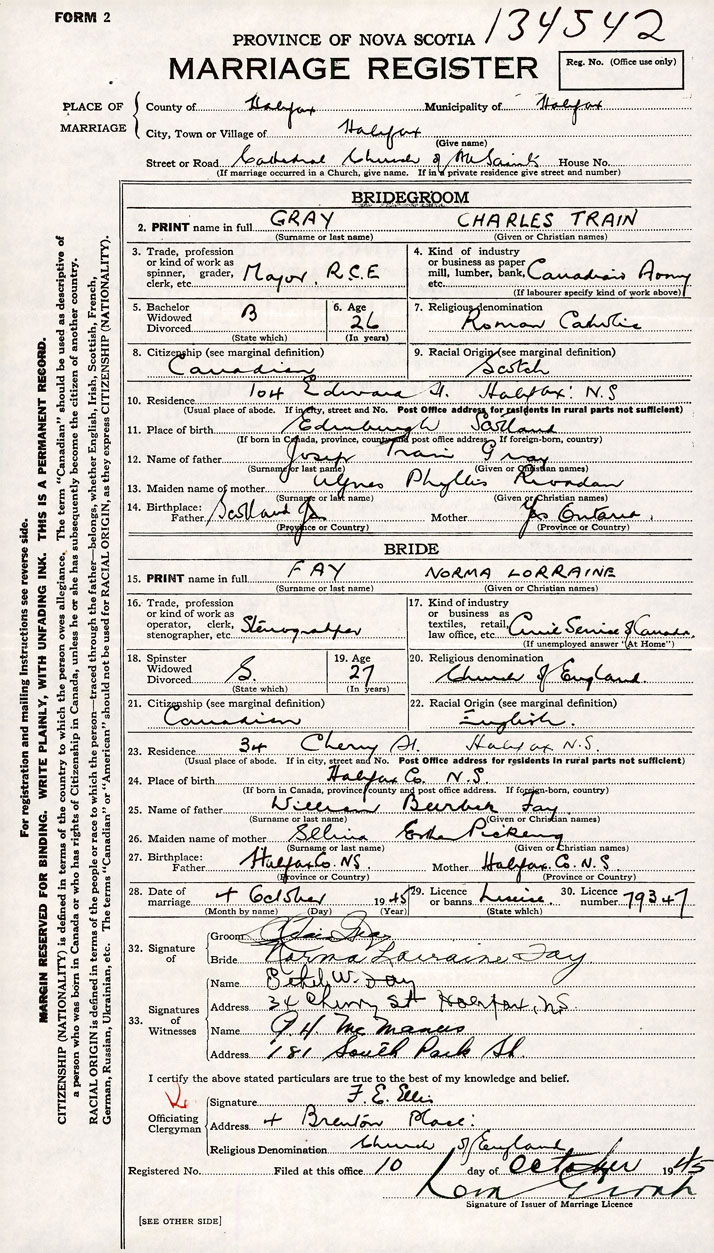 FORM 2
134542
PROVINCE OF NOVA SCOTIA
MARRIAGE REGISTER
Reg. No. (Office use only)
PLACE OF MARRIAGE
County of Halifax Municipality of Halifax
City, Town or Village of Halifax
(Give name)
Street or Road Cathedral Church of All Saints House No.
(If marriage occurred in a Church, give name. If in a private residence give street and number)
BRIDEGROOM
2. PRINT name in full GRAY CHARLES TRAIN
(Surname or last name) (Given or Christian names)
3. Trade, profession or kind of work as spinner, grader, clerk, etc. Major, R.C.E
4. Kind of industry or business as paper mill, lumber, bank, etc. Canadian Army
(If labourer specify kind of work above)
5. Bachelor Widowed Divorced B
(State which)
6. Age 26
(In years)
7. Religious denomination Roman Catholic
8. Citizenship (see marginal definition) Canadian
9. Racial Origin (see marginal definition) Scotch
10. Residence 104 Edward St. Halifax N.S
(Usual place of abode. If in city, street and No. Post Office address for residents in rural parts not sufficient)
11. Place of birth Edinburgh Scotland
(If born in Canada, province, county and post office address. If foreign-born, country)
12. Name of father Joseph Train Gray
(Surname or last name) (Given or Christian names)
13. Maiden name of mother Agnes Phyllis
(Surname or last name) (Given or Christian names)
14. Birthplace: Father Scotland Mother Ontario
(Province or Country) (Province or Country)
BRIDE
15. PRINT name in full FAY NORMA LORRAINE
(Surname or last name) (Given or Christian names)
16. Trade, profession or kind of work as operator, clerk, stenographer, etc. Stenographer
17. Kind of industry or business as textiles, retail, law office, etc. Civil Service of Canada
(If unemployed answer "At Home")
18. Spinster Widowed Divorced S.
(State which)
19. Age 27
(In years)
20. Religious denomination Church of England.
21. Citizenship (see marginal definition) Canadian
22. Racial Origin (see marginal definition) English.
23. Residence 34 Cherry St. Halifax N.S.
(Usual place of abode. If in city, street and No. Post Office address for residents in rural parts not sufficient)
24. Place of birth Halifax Co. N.S.
(If born in Canada, province, county and post office address. If foreign-born, country)
25. Name of father William Fay
(Surname or last name) (Given or Christian names)
26. Maiden name of mother
(Surname or last name) (Given or Christian names)
27. Birthplace: Father Halifax Co. N.S. Mother Halifax Co. N.S.
(Province or Country) (Province or Country)
28. Date of marriage 4 October 1945
(Month by name) (Day) (Year)
29. Licence or banns License
(State which)
30. Licence number 79347
32. Signature of
Groom Gray
Bride Norma Lorraine Fay
33. Signatures of Witnesses
Name Ethel W. Fay
Address 34 Cherry St Halifax, N.S.
Name McManus
Address 181 South Park St.
I certify the above stated particulars are true to the best of my knowledge and belief.
Officiating Clergyman
Signature F. E. Ellis
Address 4 Brenton Place.
Religious Denomination Church of England
Registered No. Filed at this office 10 day of October 1945
Signature of Issuer of Marriage Licence
[SEE OTHER SIDE]
For registration and mailing instructions see reverse side.
MARGIN RESERVED FOR BINDING. WRITE PLAINLY, WITH UNFADING INK. THIS IS A PERMANENT RECORD.
CITIZENSHIP (NATIONALITY) is defined in terms of the country to which the person owes allegiance. The term "Canadian" should be used as descriptive of
a person who was born in Canada or who has rights of Citizenship in Canada, unless he or she has subsequently become the citizen of another country.
RACIAL ORIGIN is defined in terms of the people or race to which the person—traced through the father—belongs, whether English, Irish, Scottish, French,
German, Russian, Ukrainian, etc. The terms "Canadian" or "American" should not be used for RACIAL ORIGIN, as they express CITIZENSHIP (NATIONALITY).